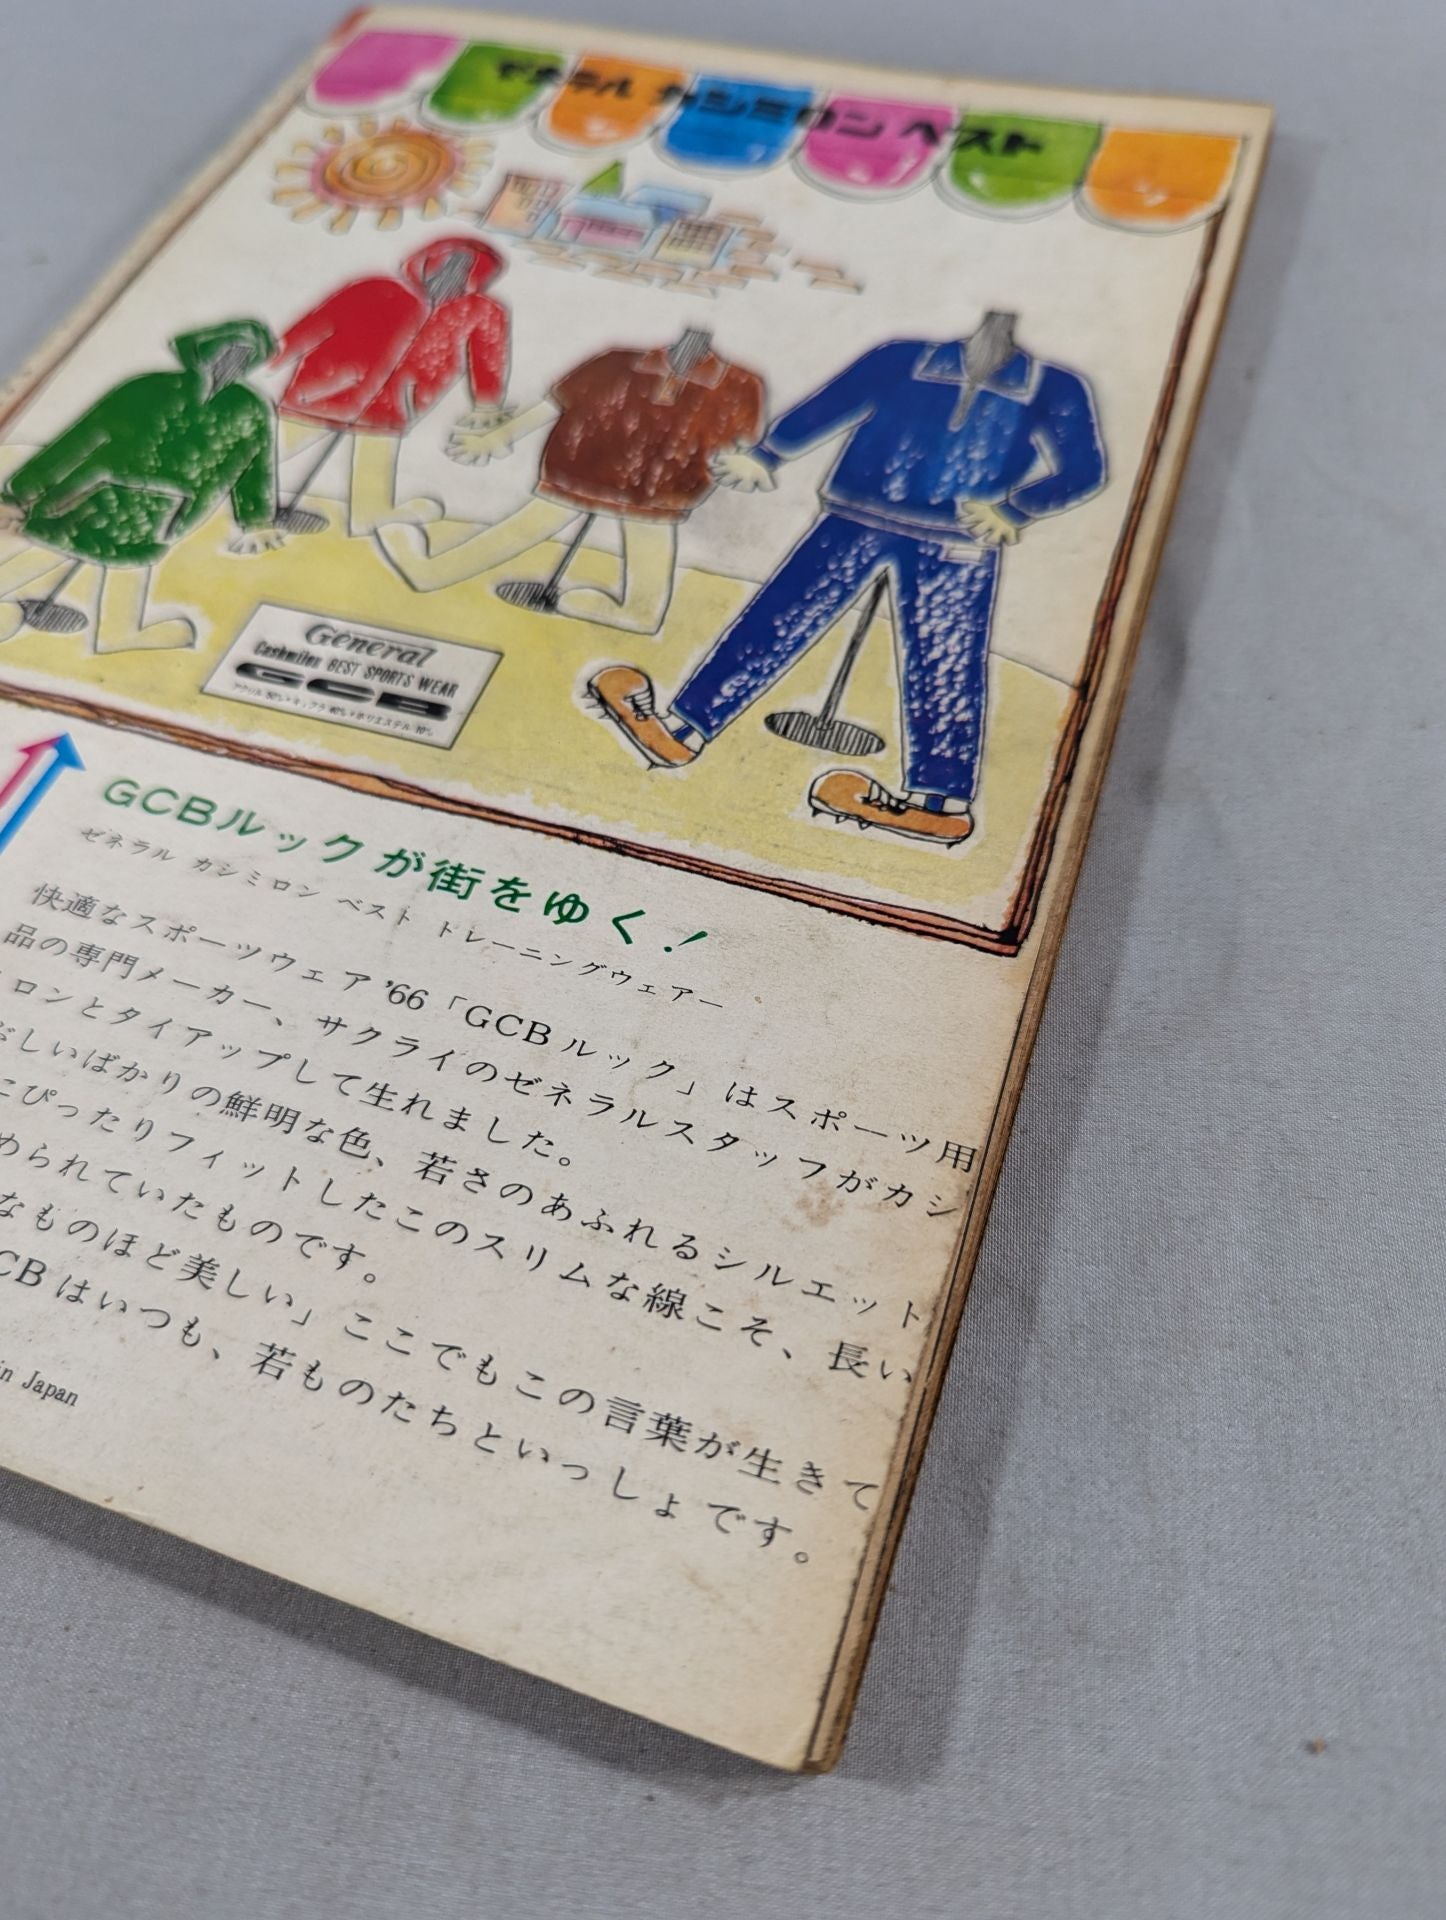 ゼネラル カシミロン ベスト
General
Cashmilon BEST SPORTS WEAR
GCB
アクリル 50%・キュプラ 40%・ポリエステル 10%
GCBルックが街をゆく!
ゼネラル カシミロン ベスト トレーニングウェアー
快適なスポーツウェア'66「GCBルック」はスポーツ用
品の専門メーカー、サクライのゼネラルスタッフがカシ
ロンとタイアップして生れました。
しいばかりの鮮明な色、若さのあふれるシルエット
にぴったりフィットしたこのスリムな線こそ、長い
められていたものです。
なものほど美しい」ここでもこの言葉が生きて
CBはいつも、若ものたちといっしょです。
in Japan